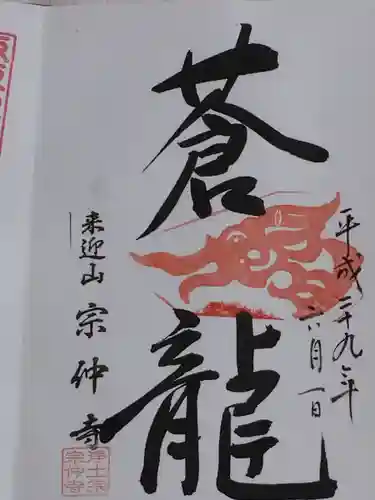 平成二十九年
六月一日
蒼龍
来迎山 宗仲寺
浄土宗
宗仲寺